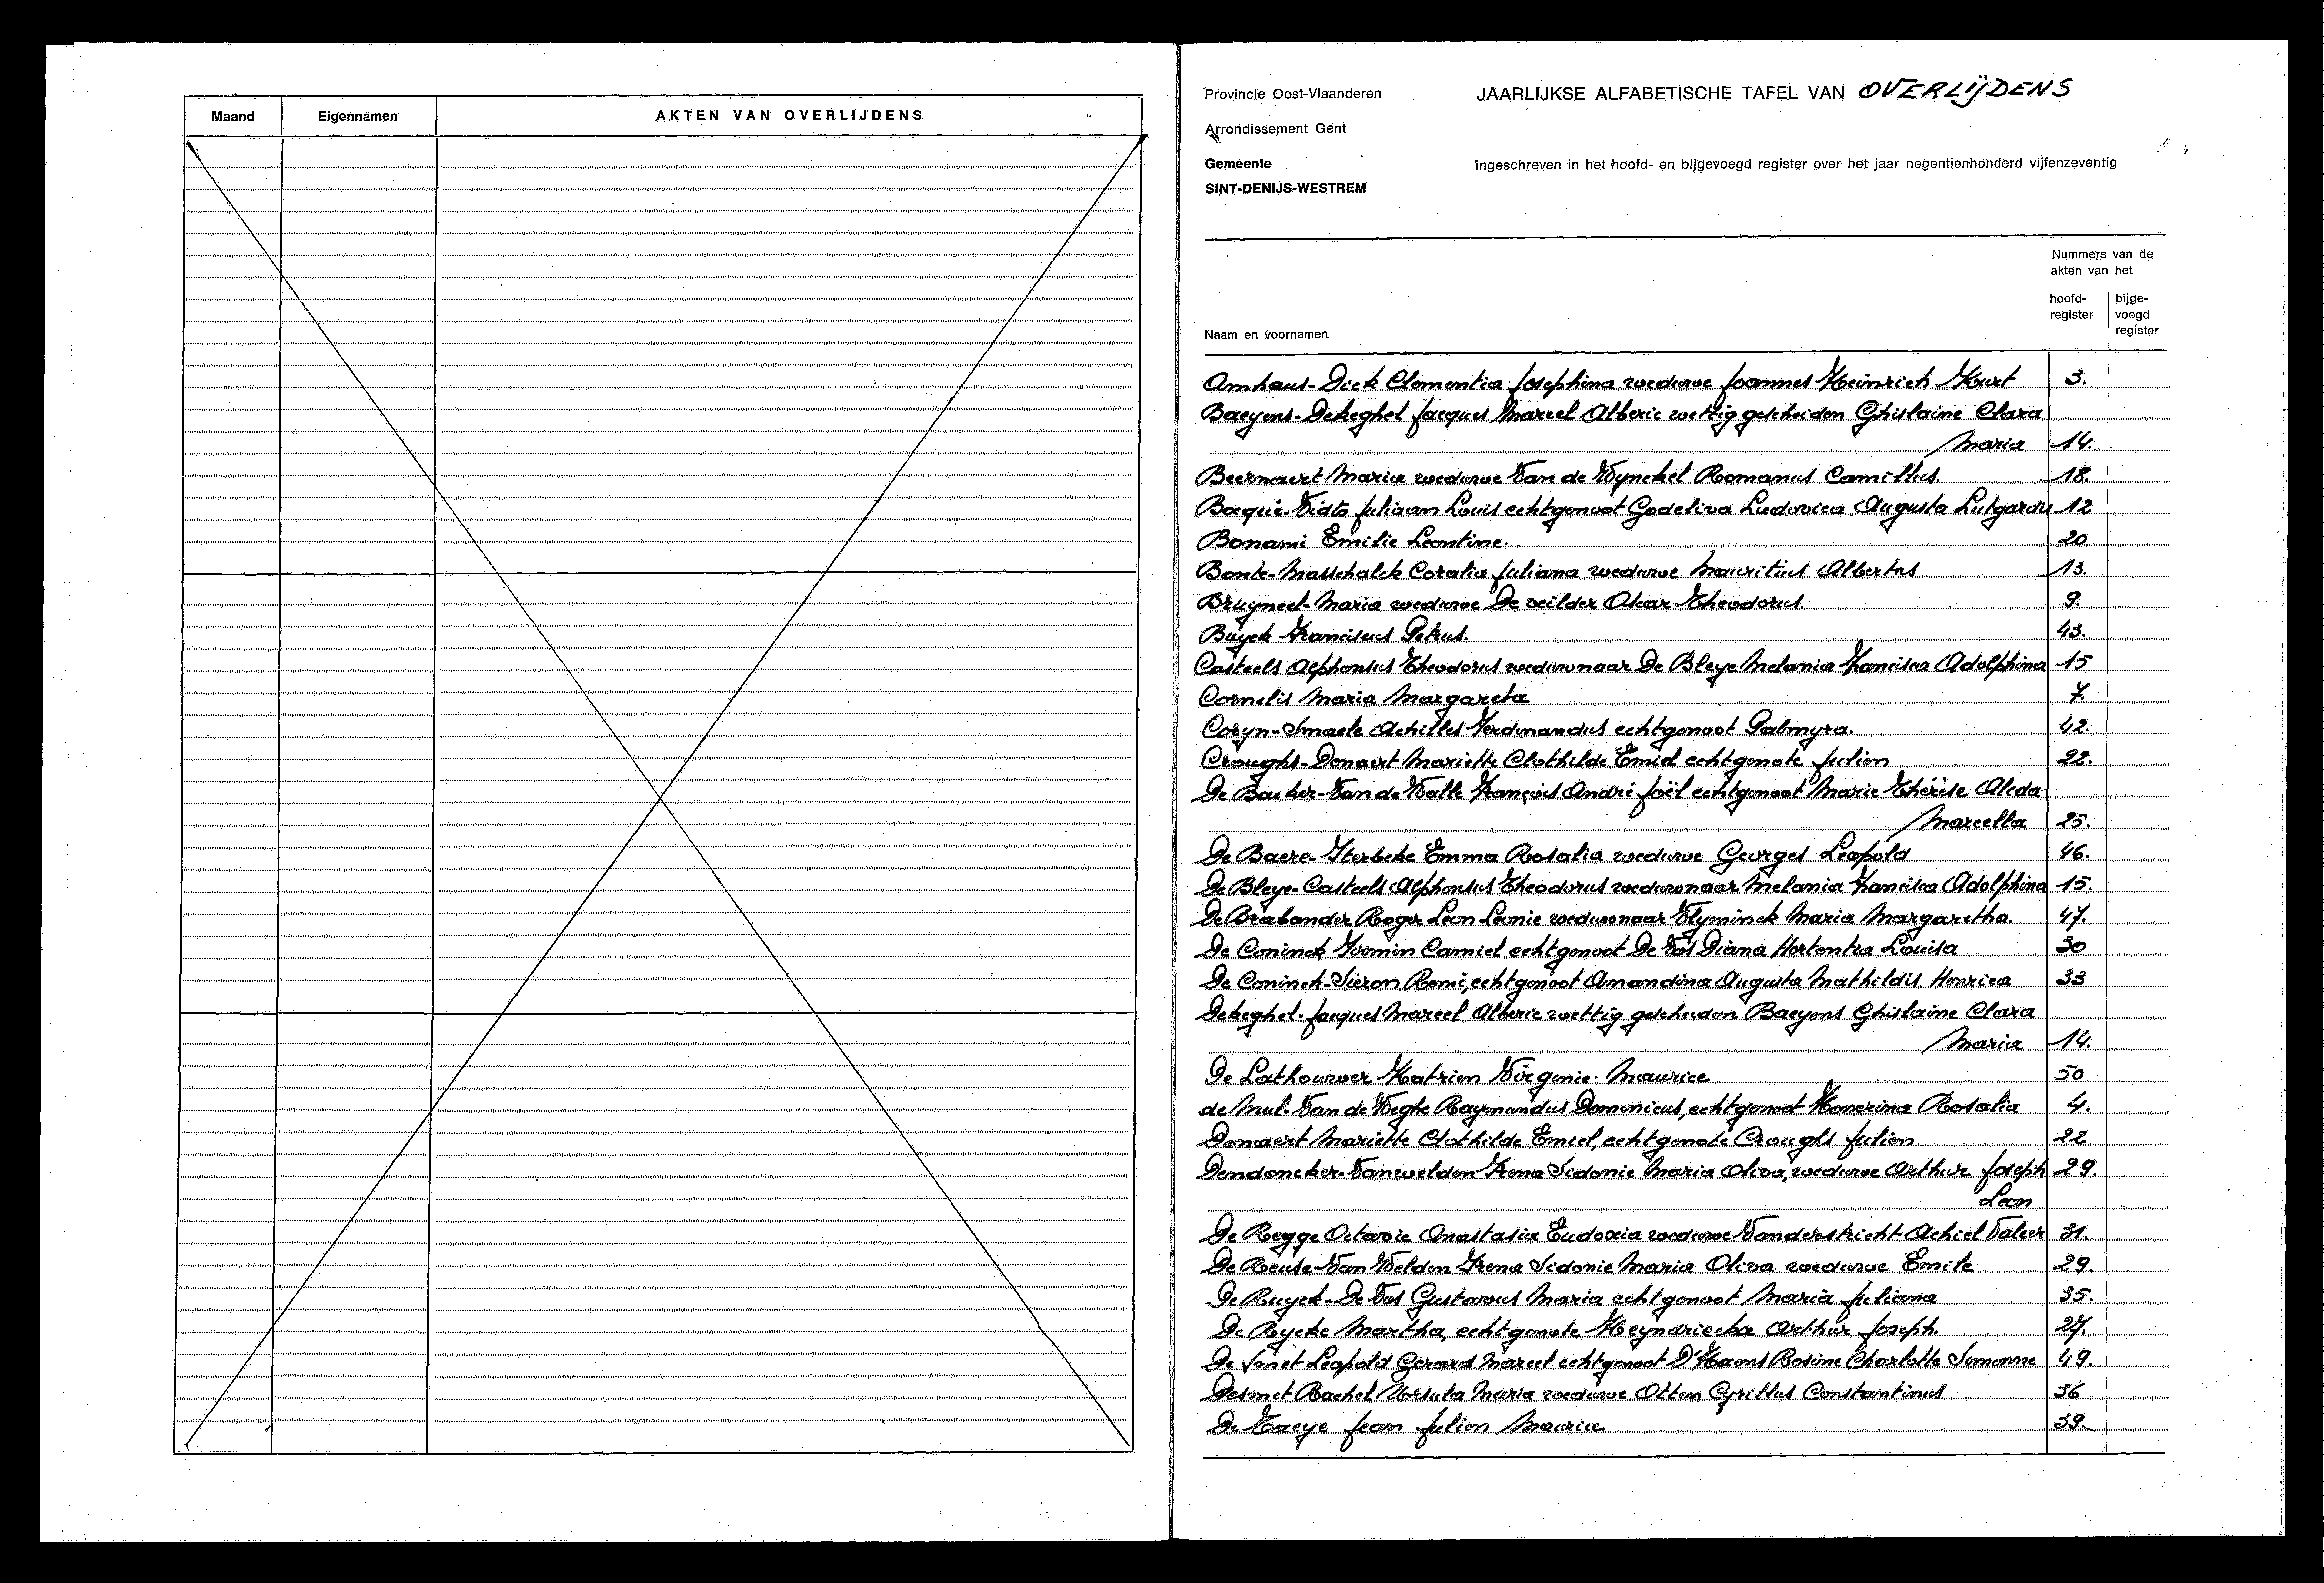 Maand Eigennamen AKTEN VAN OVERLIJDENS
Provincie Oost-Vlaanderen
JAARLIJKSE ALFABETISCHE TAFEL VAN OVERLIJDENS
Arrondissement Gent
Gemeente
SINT-DENIJS-WESTREM
ingeschreven in het hoofd- en bijgevoegd register over het jaar negentienhonderd vijfenzeventig
Nummers van de
akten van het
hoofd-
register
bijge-
voegd
register
Naam en voornamen
Amhaus-Dick Clementia Josephina weduwe Joannes Heinrich Kurt 3.
Baeyens-Dekeghel Jacques Marcel Alberic wettig gescheiden Ghislaine Clara
Maria 14.
Beernaert Maria weduwe Van de Wynckel Romanus Camillus. 18.
Bocqué-Vidts Juliaan Louis echtgenoot Godeliva Ludovica Augusta Lutgardis 12
Bonami Emilie Leontine. 20
Bonte-Masschalck Coralia Juliana weduwe Mauritius Albertus 13.
Bruyneel-Maria weduwe De veilder Oscar Theodorus. 9.
Buyck Franciscus Petrus. 43.
Casteels Alphonsus Theodorus weduwnaar De Bleye Melania Francisca Adolphina 15
Cornelis Maria Margareta 7.
Coryn-Smaele Achilles Ferdinandus echtgenoot Palmyra. 42.
Croughs-Denaert Mariette Clothilde Emiel echtgenote Julien 22.
De Backer-Van de Walle François André Joël echtgenoot Marie Thérèse Aleda
Marcella 25.
De Baere-Sterbeke Emma Rosalia weduwe Georges Leopold 46.
De Bleye-Casteels Alphonsus Theodorus weduwnaar Melania Francisca Adolphina 15.
De Brabander Roger Leon Leonie weduwnaar Vlyminck Maria Margaretha. 47.
De Coninck Firmin Camiel echtgenoot De Vos Diana Hortentia Louisa 30
De Coninck-Sieron Remi, echtgenoot Amandina Augusta Mathildis Henrica 33
Dekeghel-Jacques Marcel Alberic wettig gescheiden Baeyens Ghislaine Clara
Maria 14.
De Lathouwer Katrien Virginie Maurice 50
de Mul-Van de Weghe Raymondus Dominicus, echtgenoot Honorina Rosalia 4.
Denaert Mariette Clothilde Emiel, echtgenote Croughs Julien 22
Dendoncker-Vanwelden Irena Sidonie Maria Oliva, weduwe Arthur Joseph 29.
Leon
De Regge Octavie Anastasia Eudoxia weduwe Vanderstricht Achiel Valeer 31.
De Reuse-Van Welden Irena Sidonie Maria Oliva weduwe Emile 29.
De Ruyck-De Vos Gustavus Maria echtgenoot Maria Juliana 35.
De Rycke Martha, echtgenote Heyndrickx Arthur Joseph. 27.
De Smet Leopold Gerard Marcel echtgenoot D'Haens Rosine Charlotte Simonne 49.
Desmet Rachel Ursula Maria weduwe Otten Cyrillus Constantinus 36
De Taeye Jean Julien Maurice 39.